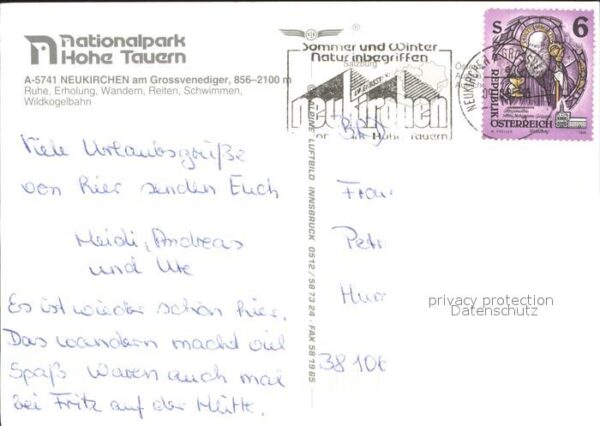 nationalpark
Hohe Tauern
A-5741 NEUKIRCHEN am Grossvenediger, 856–2100 m
Ruhe, Erholung, Wandern, Reiten, Schwimmen,
Wildkogelbahn
Viele Urlaubsgrüße
von hier senden Euch
Heidi, Andreas
und Ute
Es ist wieder schön hier.
Das wandern macht viel
Spaß waren auch mal
bei Fritz auf der Hütte.
ALPINE LUFTBILD INNSBRUCK 0512/587324 · FAX 581985
Sommer und Winter
Natur inbegriffen
Salzburg
neukirchen
Hohe Tauern
NEUKIRCHEN
6
S
REPUBLIK
ÖSTERREICH
BRD
Frau
Petr
38106
privacy protection
Datenschutz